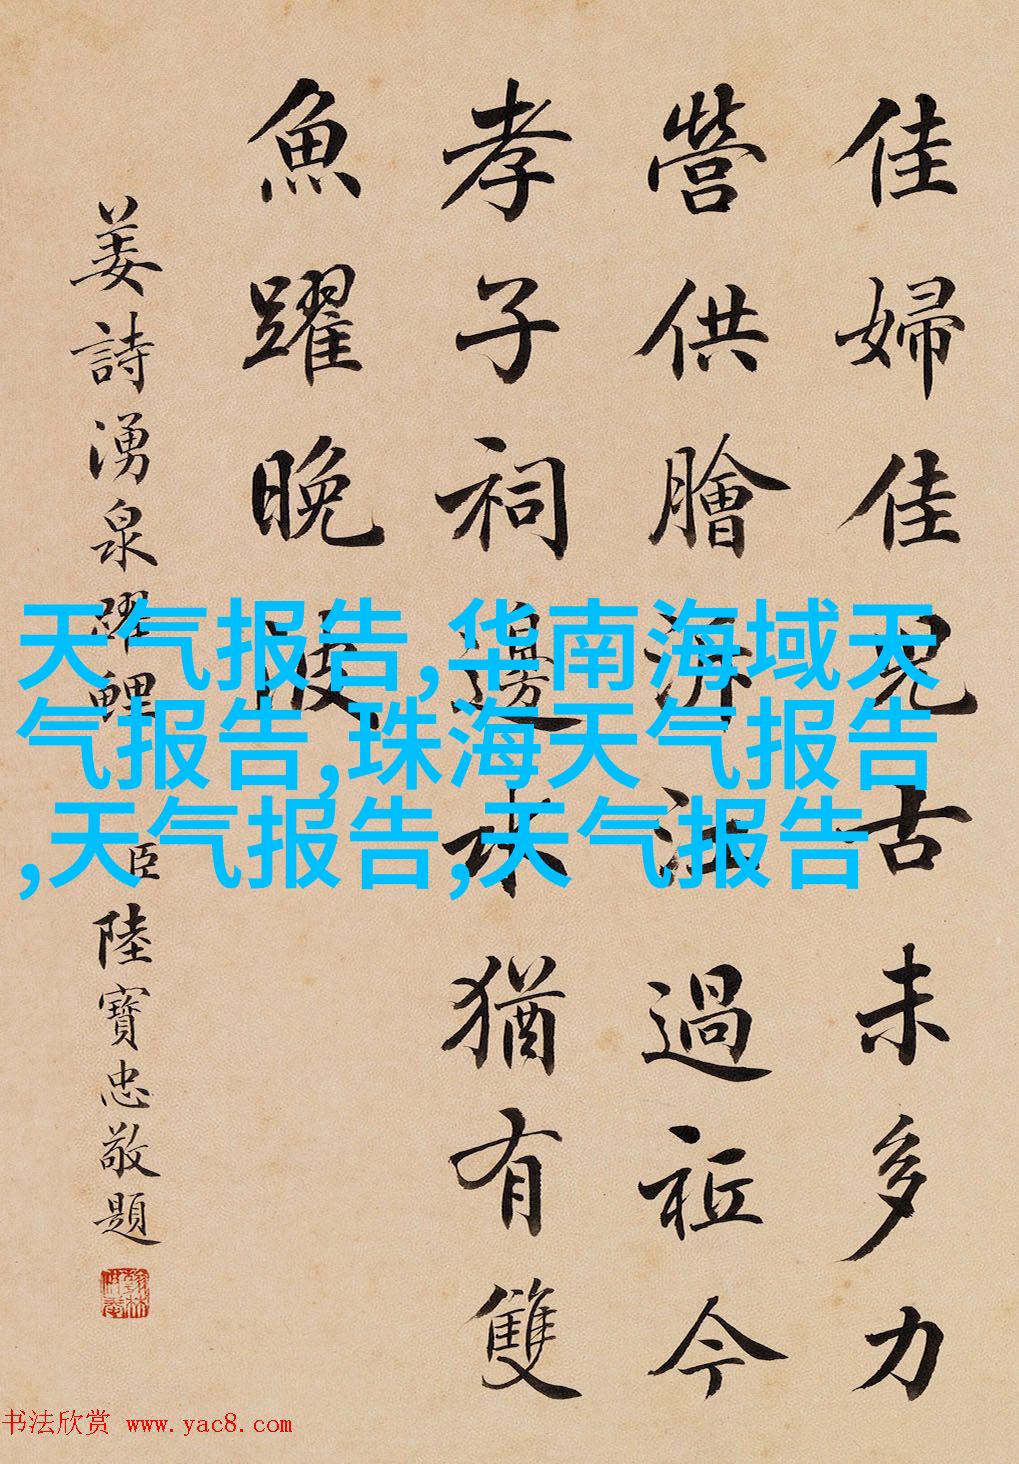 佳婦佳兒古未多力
營供膾泝江過祗今
孝子祠邊水猶有雙
魚躍晚波
姜詩湧泉躍鯉 臣陸寶忠敬題
天气报告,华南海域天
气报告,珠海天气报告
,天气报告,天气报告
书法欣赏 www.yac8.com